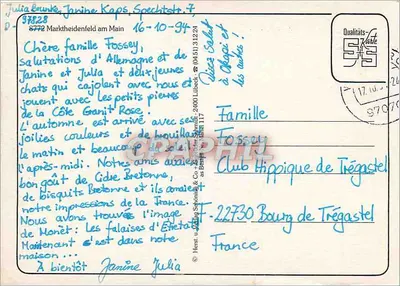 Julia Janine Kaps, Spechtstr. 7
97828
8772 Marktheidenfeld am Main
16-10-94
Chère famille Fossey,
salutations d'Allemagne et de
Janine et Julia et deux jeunes
chats qui cajolent avec nous et
jouent avec les petits pierres
de la Côte Granit Rose.
L'automne est arrivé avec ses
joiliies couleurs et de brouillard
le matin et beaucoup de
l'après-midi. Notre amis
bon goût de Cidre Bretonne,
de bisquits Bretonne et ils
notre impressions de la France.
Nous avons trouvée l'image
de Monêt: les falaises d'Étretat
Maintenant c'est dans notre
maison...
À bientôt Janine Julia
Salut
à
les autres!
Qualitäts-
Karte
Famille
Fossey
Club Hippique de Trégastel
22730 Bourg de Trégastel
France